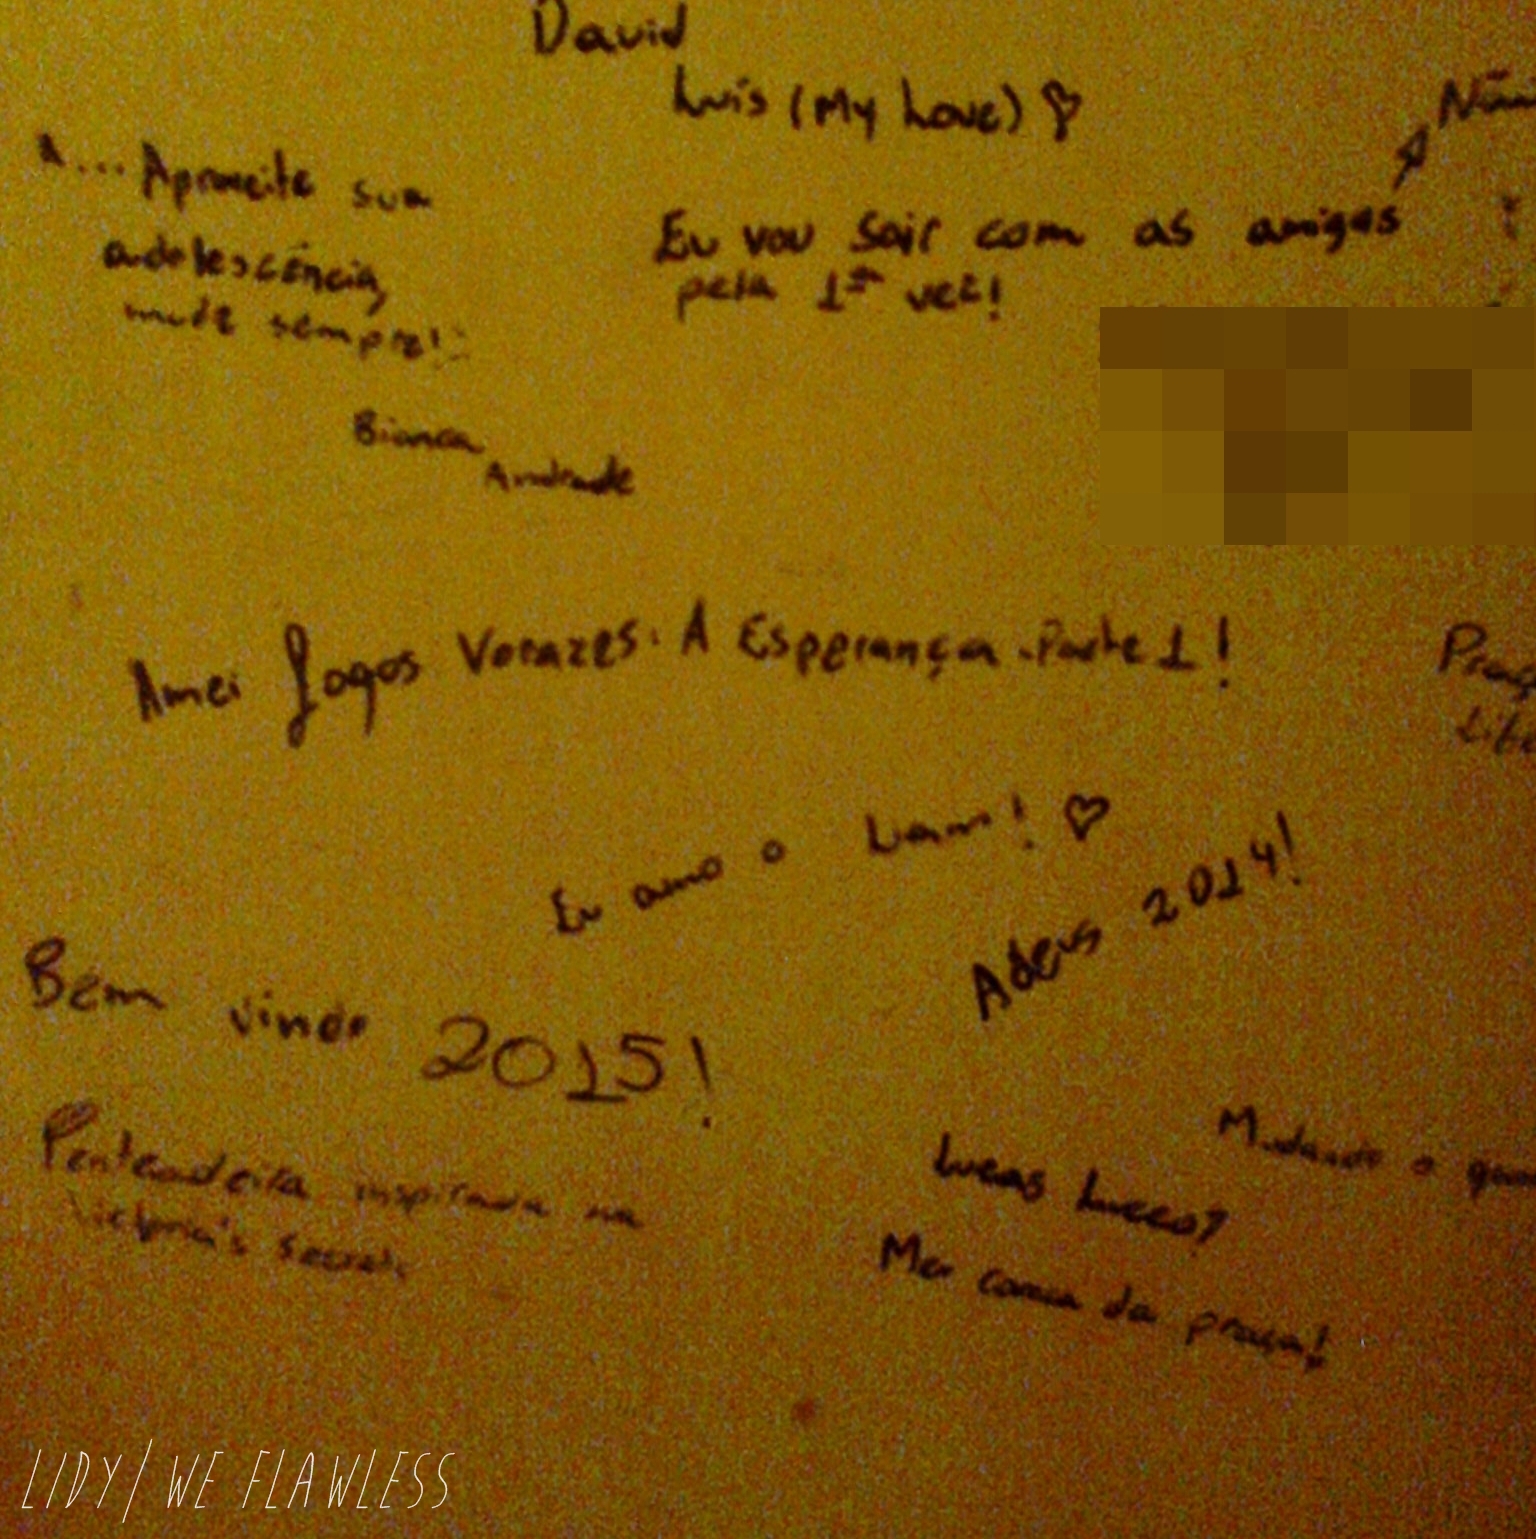 David
Luis (My Love)
Aproveite sua
adolescência,
mude sempre!
Eu vou sair com as amigas
pela 1ª vez!
Bianca
Andrade
Amei Jogos Vorazes: A Esperança - Parte 1!
Eu amo o Liam!
Adeus 2014!
Bem vindo 2015!
Penteadeira inspirada na
Victoria's Secret.
Mudando o
Lucas Lucco?
Meu coroa da praça!
LIDY/WE FLAWLESS